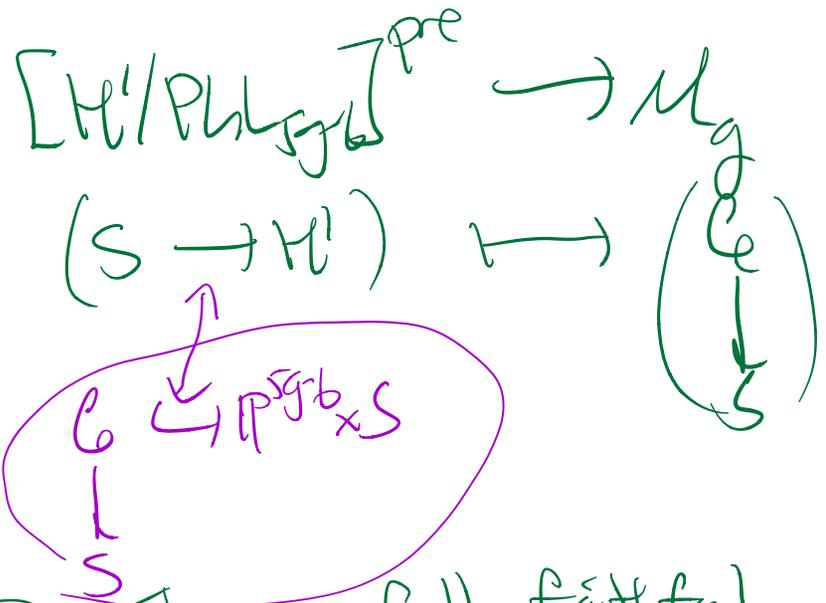 [H'/PGL_{5g-6}]^{pre} → M_g
(S → H') ↦ (C ↓ S)
C ↪ P^{5g-6} × S
↓
S
fully faithful